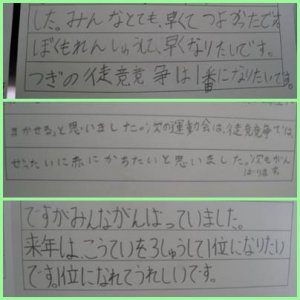 した。みんなとても、早くてつよかったです
ぼくもれんしゅうして、早くなりたいです。
つぎの徒競争は1番になりたいです。
まかせる」と思いました。次の運動会は、徒競争では、
ぜったいに赤にかちたいと思いました。次もがん
ばります
ですがみんながんばっていました。
来年は、こうていを3しゅうして1位になりたい
です。1位になれてうれしいです。